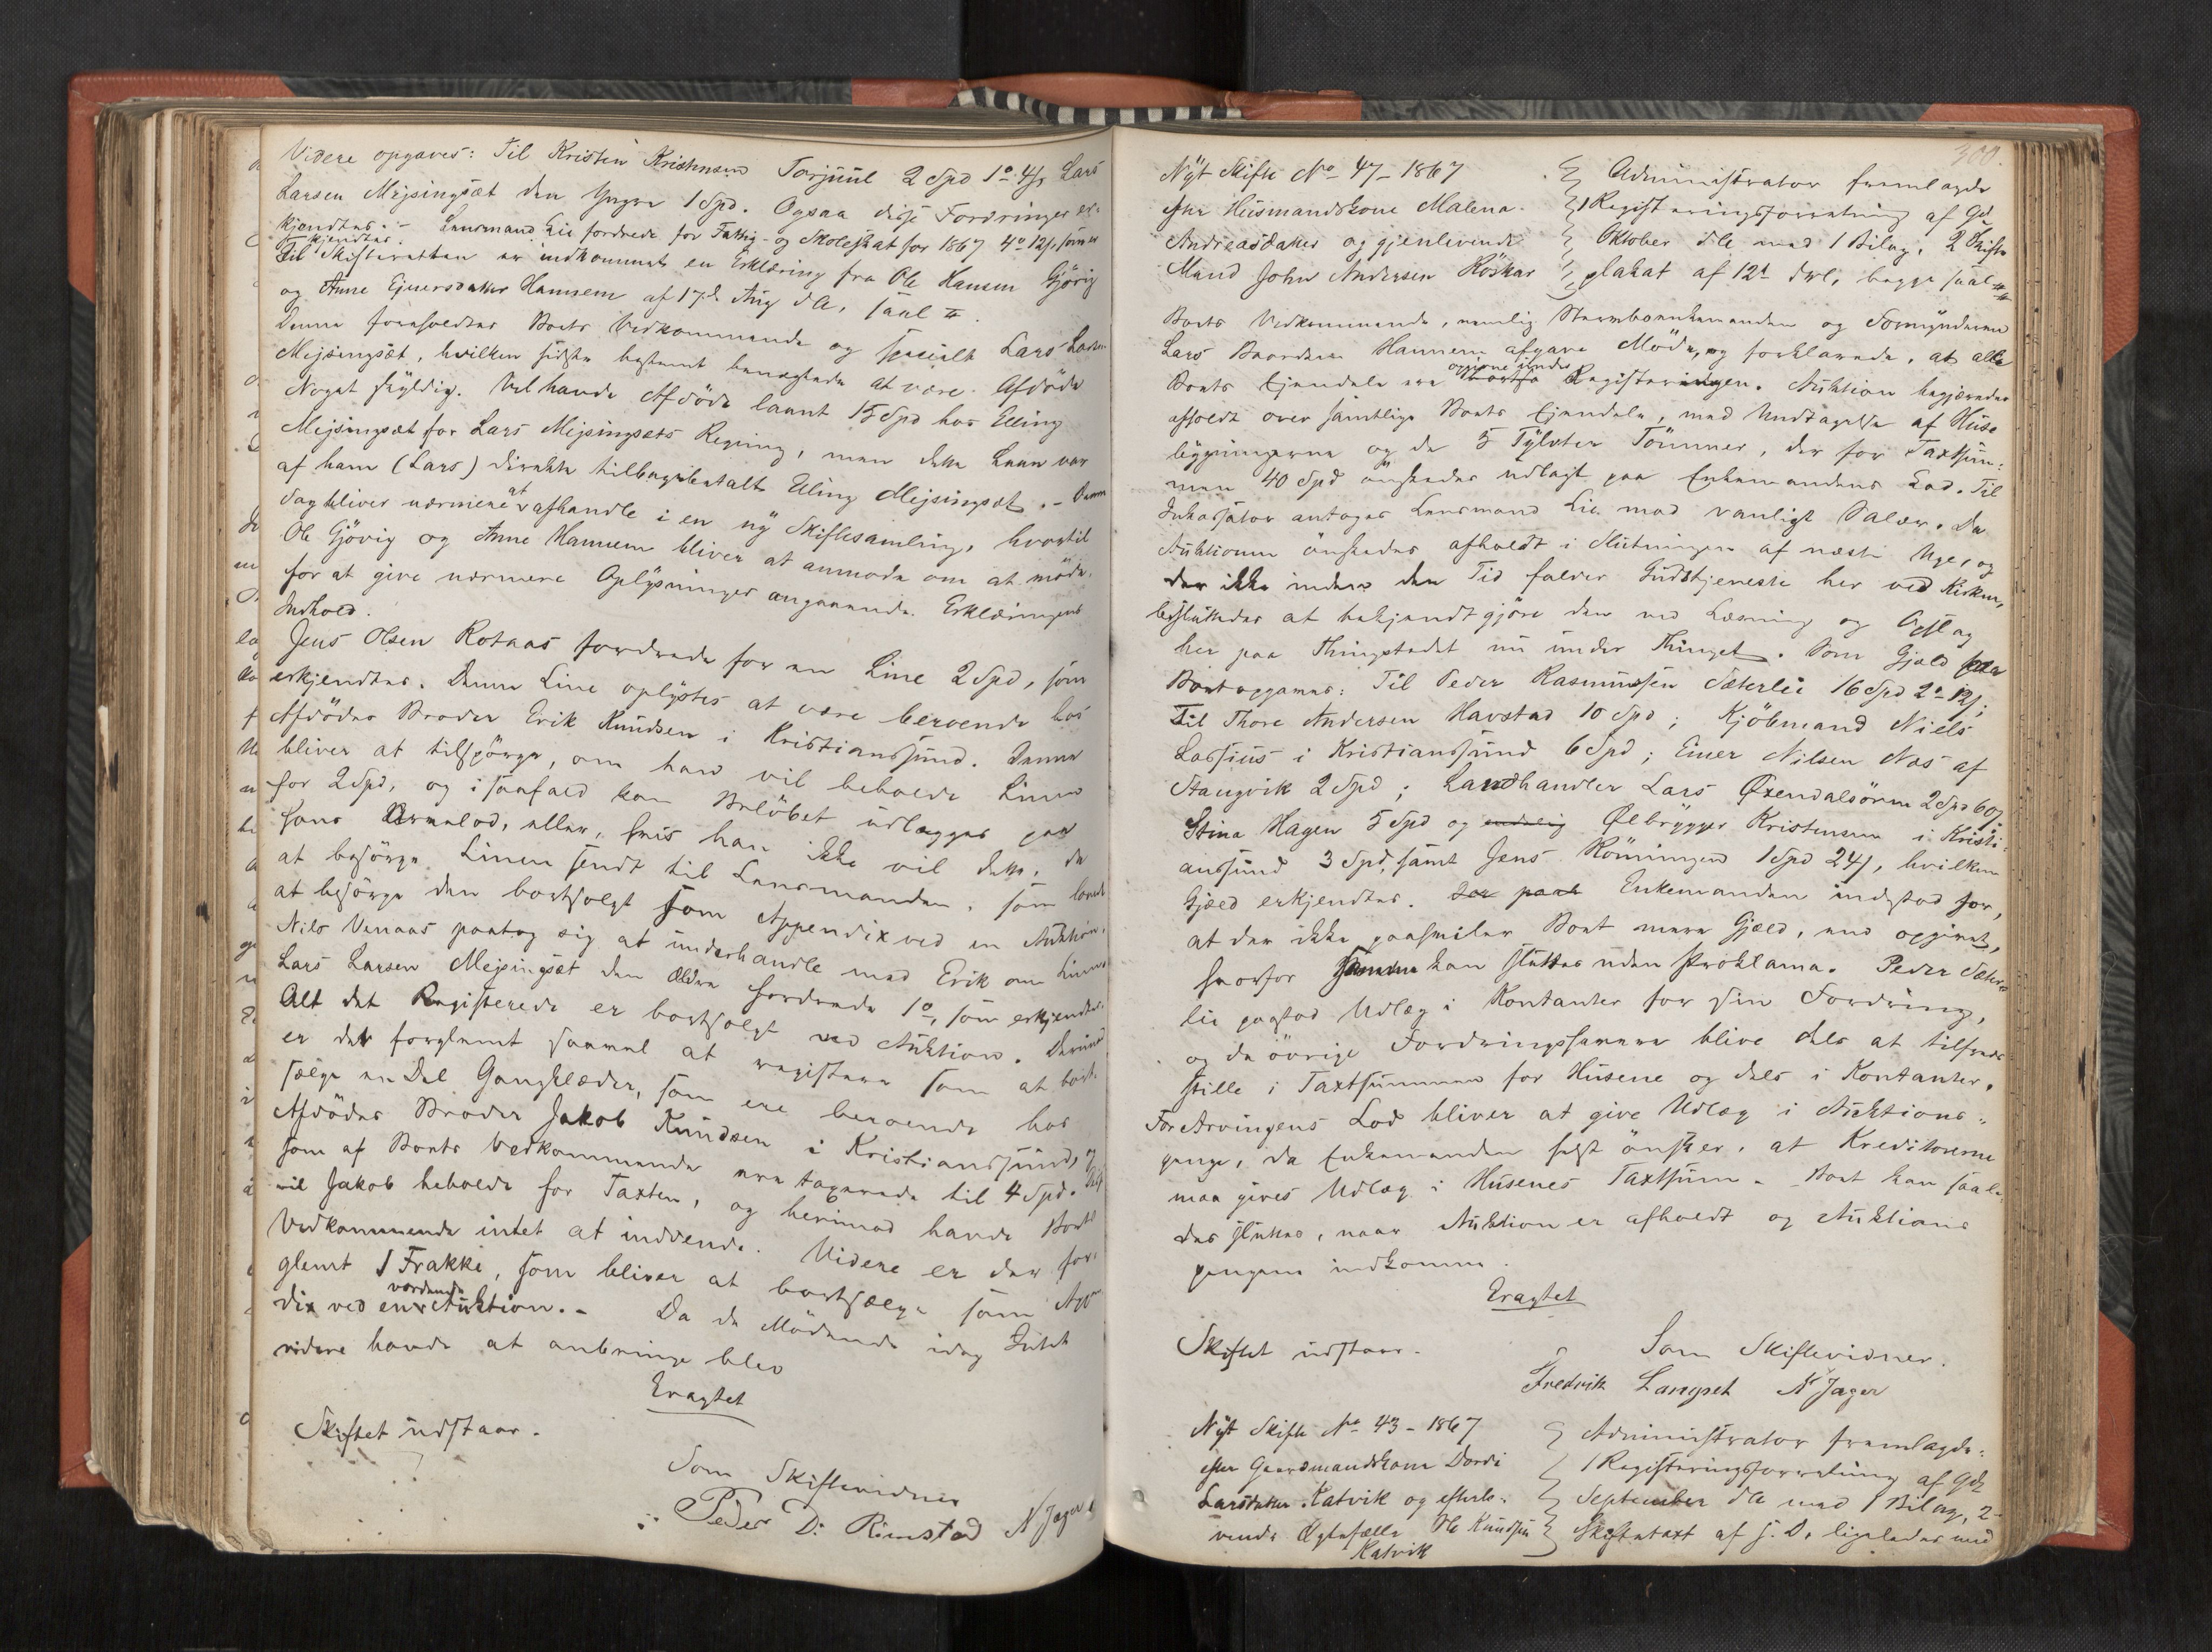 Videre opgaves: Til Kristen Kristensen Torjuul 2 Spd 1 o. 4 s, Lars
Larsen Mejsingsæt den Yngre 1 Spd. Ogsaa disse Fordringer er-
kjendtes. - Lensmand Lie fordrede for Fattig- og Skoleskat for 1867 4 o 12 s, som er
kjendtes.
Til Skifteretten er indkommet en Erklæring fra Ole Hansen Gjövig
og Anne Ejnersdatter Hannem af 17de Aug dA, saal
Denne foreholdtes Boets Vedkommende og specielt Lars Larsen
Mejsingsæt, hvilken sidste bestemt benegtede at være Afdöde
Noget skyldig. Vel havde Afdöde laant 15 Spd hos Elling
Mejsingsæt for Lars Mejsingsæts Regning, men dette Laan var
af ham (Lars) direkte tilbagebetalt Elling Mejsingsæt. - Denne
Sag bliver nærmere at afhandle i en ny Skiftesamling, hvortil
Ole Gjövig og Anne Hannem bliver at anmode om at möde,
for at give nærmere Oplysninger angaaende Erklæringens
Indhold.
Jens Olsen Rotaas fordrede for en Line 2 Spd, som
erkjendtes. Denne Line oplystes at være beroende hos
Afdödes Broder Erik Knudsen i Kristianssund. Denne
bliver at tilspörge, om han vil beholde Linen
for 2 Spd, og i saafald kan Belöbet udlægges paa
hans Arvelod, eller, hvis han ikke vil dette, da
at besörge Linen sendt til Lensmanden, som lovede
at besörge den bortsolgt som Appendix ved en Auktion.
Nils Venaas paatog sig at underhandle med Erik om Linen
Lars Larsen Mejsingsæt den Ældre fordrede 1 o, som erkjendtes.
Alt det Registerede er bortsolgt ved Auktion. Derimod
er det forglemt saavel at registrere som at bort-
sælge en Del Gangklæder, som ere beroende hos
Afdödes Broder Jakob Knudsen i Kristianssund, og
som af Boets Vedkommende ere taxerede til 4 Spd.
vil Jakob beholde for Taxten, og herimod havde Boets
Vedkommende intet at indvende. Videre er der for-
glemt 1 Frakke, som bliver at bortsælge som Appen
dix ved en vordende Auktion. - Da de Mödende idag Intet
videre havde at anbringe blev
Eragtet
Skiftet udstaar.
Som Skiftevidner
Peder D: Rimstad N Jager
300.
Nyt Skifte No 47 - 1867
efter Huusmandskone Malena
Andreasdatter og gjenlevende
Mand John Andersen Röskar
Administrator fremlagde
1 Registeringsforretning af 9de
Oktober dA med 1 Bilag, 2 Skifte
plakat af 12te dMs, begge saal
Boets Vedkommende, nemlig Stervboenkemanden og Formynderen
Lars Baardsen Hannem afgave Möde, og forklarede, at alle
Boets Ejendele ere opgivne under Registeringen. Auktion begjæredes
afholdt over samtlige Boets Ejendele, med Undtagelse af Huse
bygningerne og de 5 Tylvter Tömmer, der for Taxtsum-
men 40 Spd önskedes udlagt paa Enkemandens Lod. Til
Inkassator antoges Lensmand Lie mod vanligt Salær. Da
Auktionen önskedes afholdt i Slutningen af næste Uge, og
der ikke inden den Tid falder Gudstjeneste her ved Kirken,
besluttedes at bekjendtgjöre den ved Læsning og Opslag
her paa Thingstedet nu under Thinget. Som Gjæld paa
Boet opgaves: Til Peder Rasmussen Sæterlie 16 Spd 2 o 12 s;
Til Thore Andersen Havstad 10 Spd; Kjöbmand Niels
Lossius i Kristianssund 6 Spd; Einer Nilsen Næs af
Stangvik 2 Spd; Landhandler Lars Øxendalsören 2 Spd 60 s
Stina Hagen 5 Spd og endelig Ølbrygger Kristensen i Kristi-
anssund 3 Spd, samt Jens Römmingen 1 Spd 24 s, hvilken
Gjæld erkjendtes. Enkemanden indestod for,
at der ikke paahviler Boet mere Gjæld, end opgivet,
hvorfor kan sluttes uden Proklama. Peder Sæter-
lie paastod Udlæg i Kontanter for sin Fordring,
og de övrige Fordringshavere blive dels at tilfreds
stille i Taxtsummen for Husene og dels i Kontanter.
For Arvingens Lod bliver at give Udlæg i Auktions-
penge, da Enkemanden helst önsker, at Kreditorerne
maa gives Udlæg i Husenes Taxtsum. Boet kan saale-
des sluttes, naar Auktion er afholdt og Auktions
pengene indkomne.
Eragtet
Skiftet udstaar.
Som Skiftevidner.
Fredrik Langset N Jager
Nyt Skifte No 43 - 1867
efter Gaardmandskone Dordi
Larsdatter Katvik og efterle-
vende Ægtefælle Ole Knudsen
Katvik
Administrator fremlagde:
1 Registeringsforretning af 9de
September dA med 1 Bilag, 2-
Skiftetaxt af s. D. ligeledes med